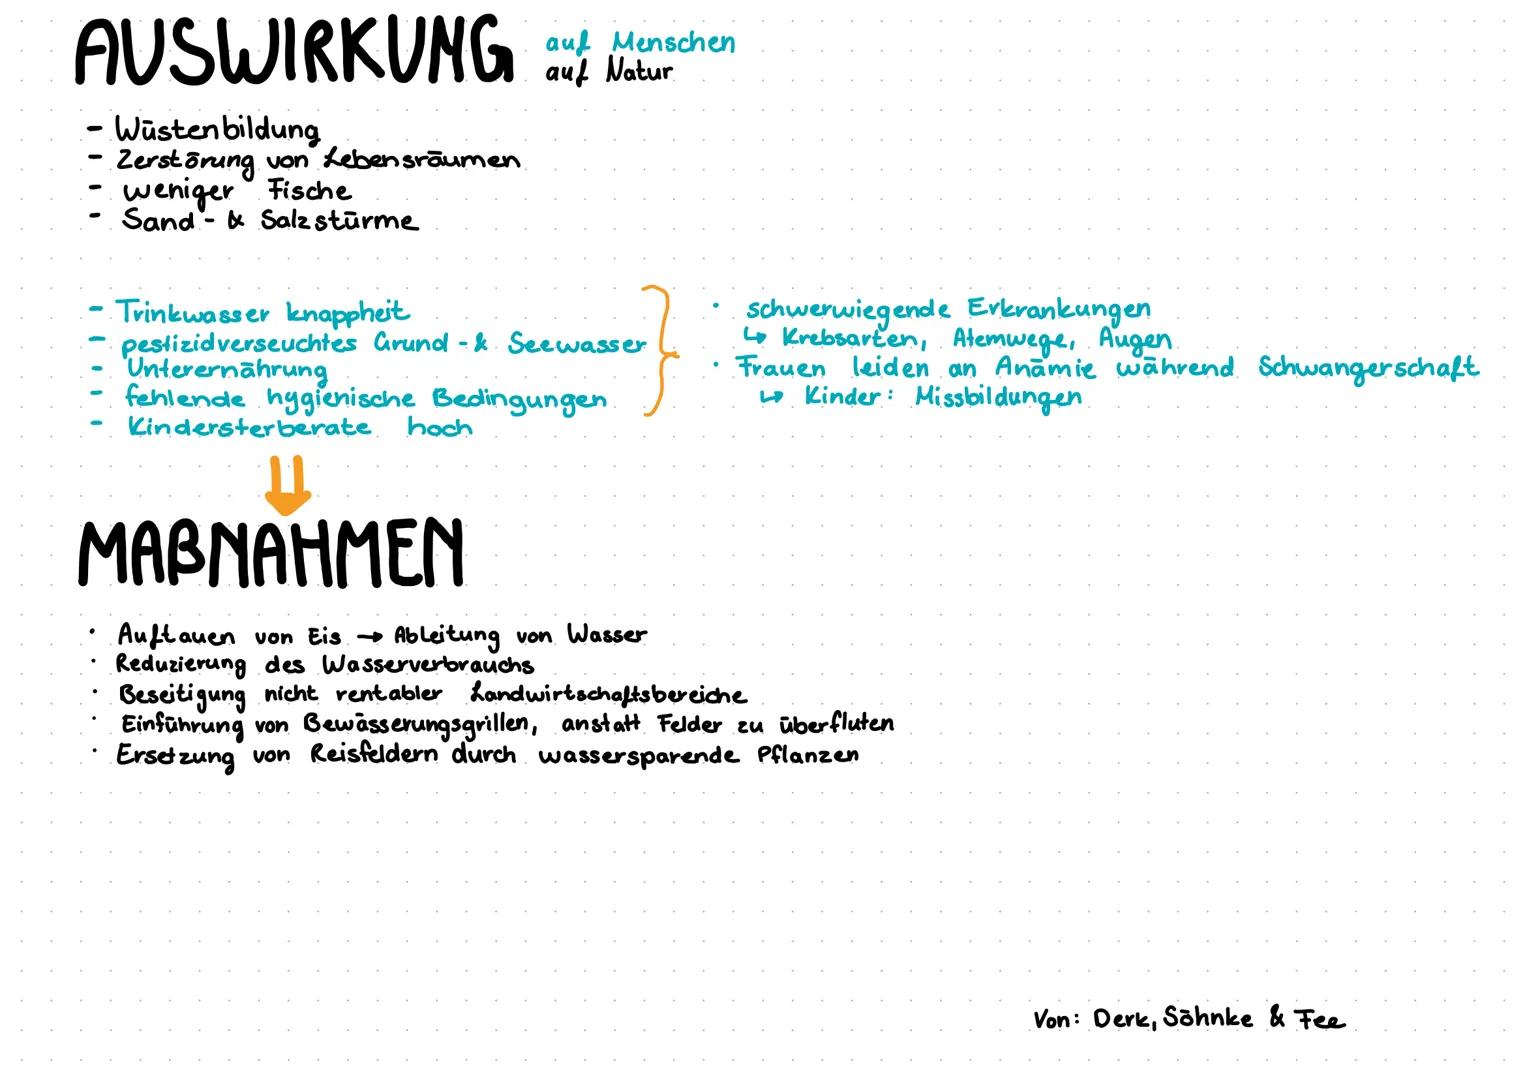 AUSWIRKUNG auf Menschen
auf Natur
- Wüstenbildung
- Zerstörung von Lebensräumen
- weniger Fische
- Sand- & Salzstürme
- Trinkwasser knappheit
- pestizidverseuchtes Grund - & Seewasser
- Unterernährung
- fehlende hygienische Bedingungen
- Kindersterberate hoch
· schwerwiegende Erkrankungen
↳ Krebsarten, Atemwege, Augen
· Frauen leiden an Anämie während Schwangerschaft
↳ Kinder: Missbildungen
MAßNAHMEN
· Auftauen von Eis → Ableitung von Wasser
· Reduzierung des Wasserverbrauchs
· Beseitigung nicht rentabler Landwirtschaftsbereiche
· Einführung von Bewässerungsgrillen, anstatt Felder zu überfluten
· Ersetzung von Reisfeldern durch wassersparende Pflanzen
Von: Derk, Söhnke & Fee